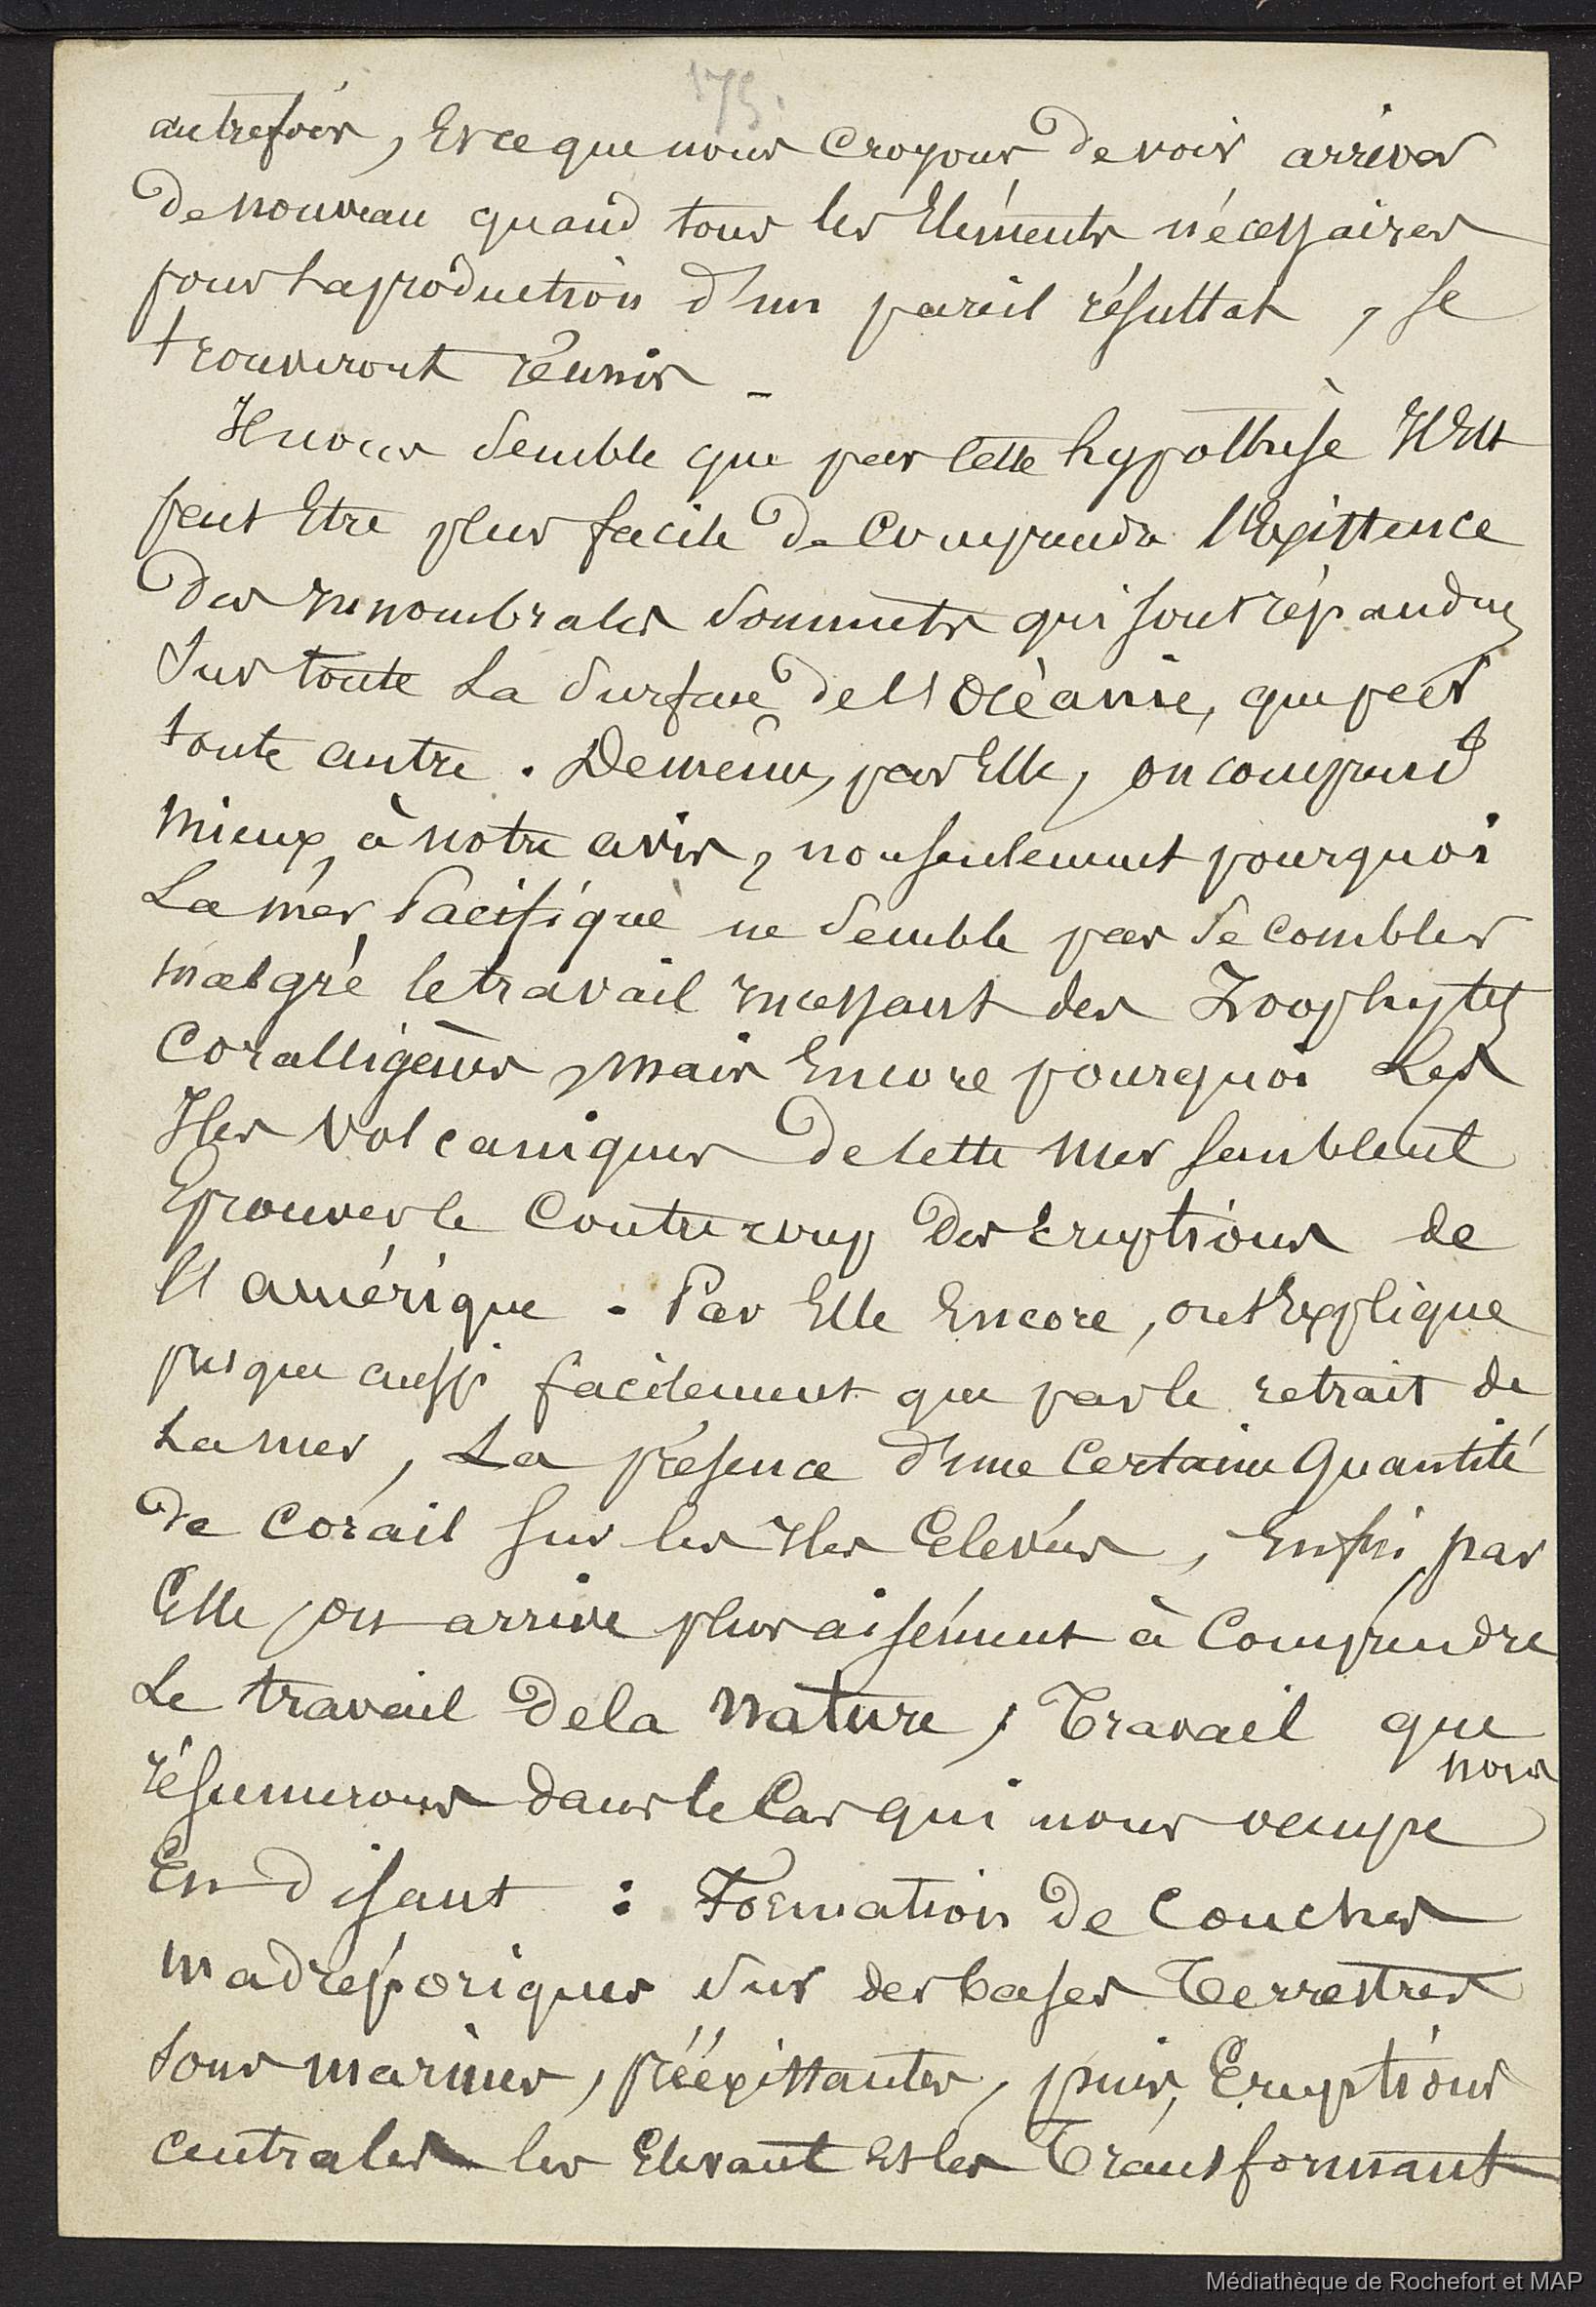 175.
autrefois, Et ce que nous Croyons devoir arriver
de nouveau quand tous les Eléments nécessaires
pour la production d'un pareil résultat, se
trouveront réunis _
Il nous semble que par cette hypothèse Il Est
peut Etre plus facile de Comprendre l'Existence
des Innombrables sommets qui sont répandus
Sur toute la surface de l'Océanie, que par
toute autre. De même, par Elle, on comprend
mieux, à notre avis, non seulement pourquoi
La mer Pacifique ne semble pas se combler
malgré le travail incessant des Zoophytes
Coralligènes, mais Encore pourquoi Les
Iles Volcaniques de cette mer semblent
Eprouver le Contre coup des Eruptions de
l'amérique. Par Elle Encore, on Explique
presque aussi facilement que par le retrait de
La mer, La présence d'une Certaine Quantité
de Corail sur les Iles Elevées, Enfin, par
Elle, on arrive plus aisément à Comprendre
Le travail de la Nature, Travail que
nous
résumerons dans le Cas qui nous occupe
En disant : Formation de Couches
madréporiques sur des bases Terrestres
sous marines, préexistantes, puis, Eruptions
centrales les Elevant et les Transformant
Médiathèque de Rochefort et MAP